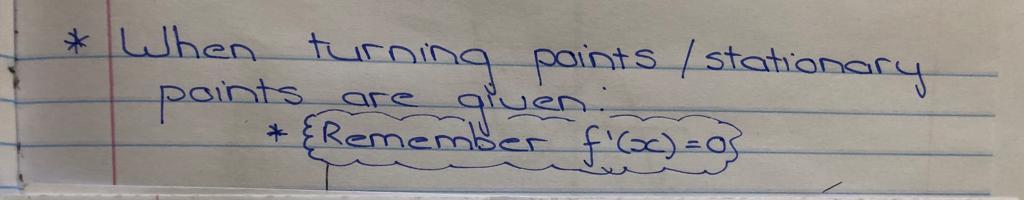 * When turning points / stationary
points are given:
* Remember f'(x) = 0